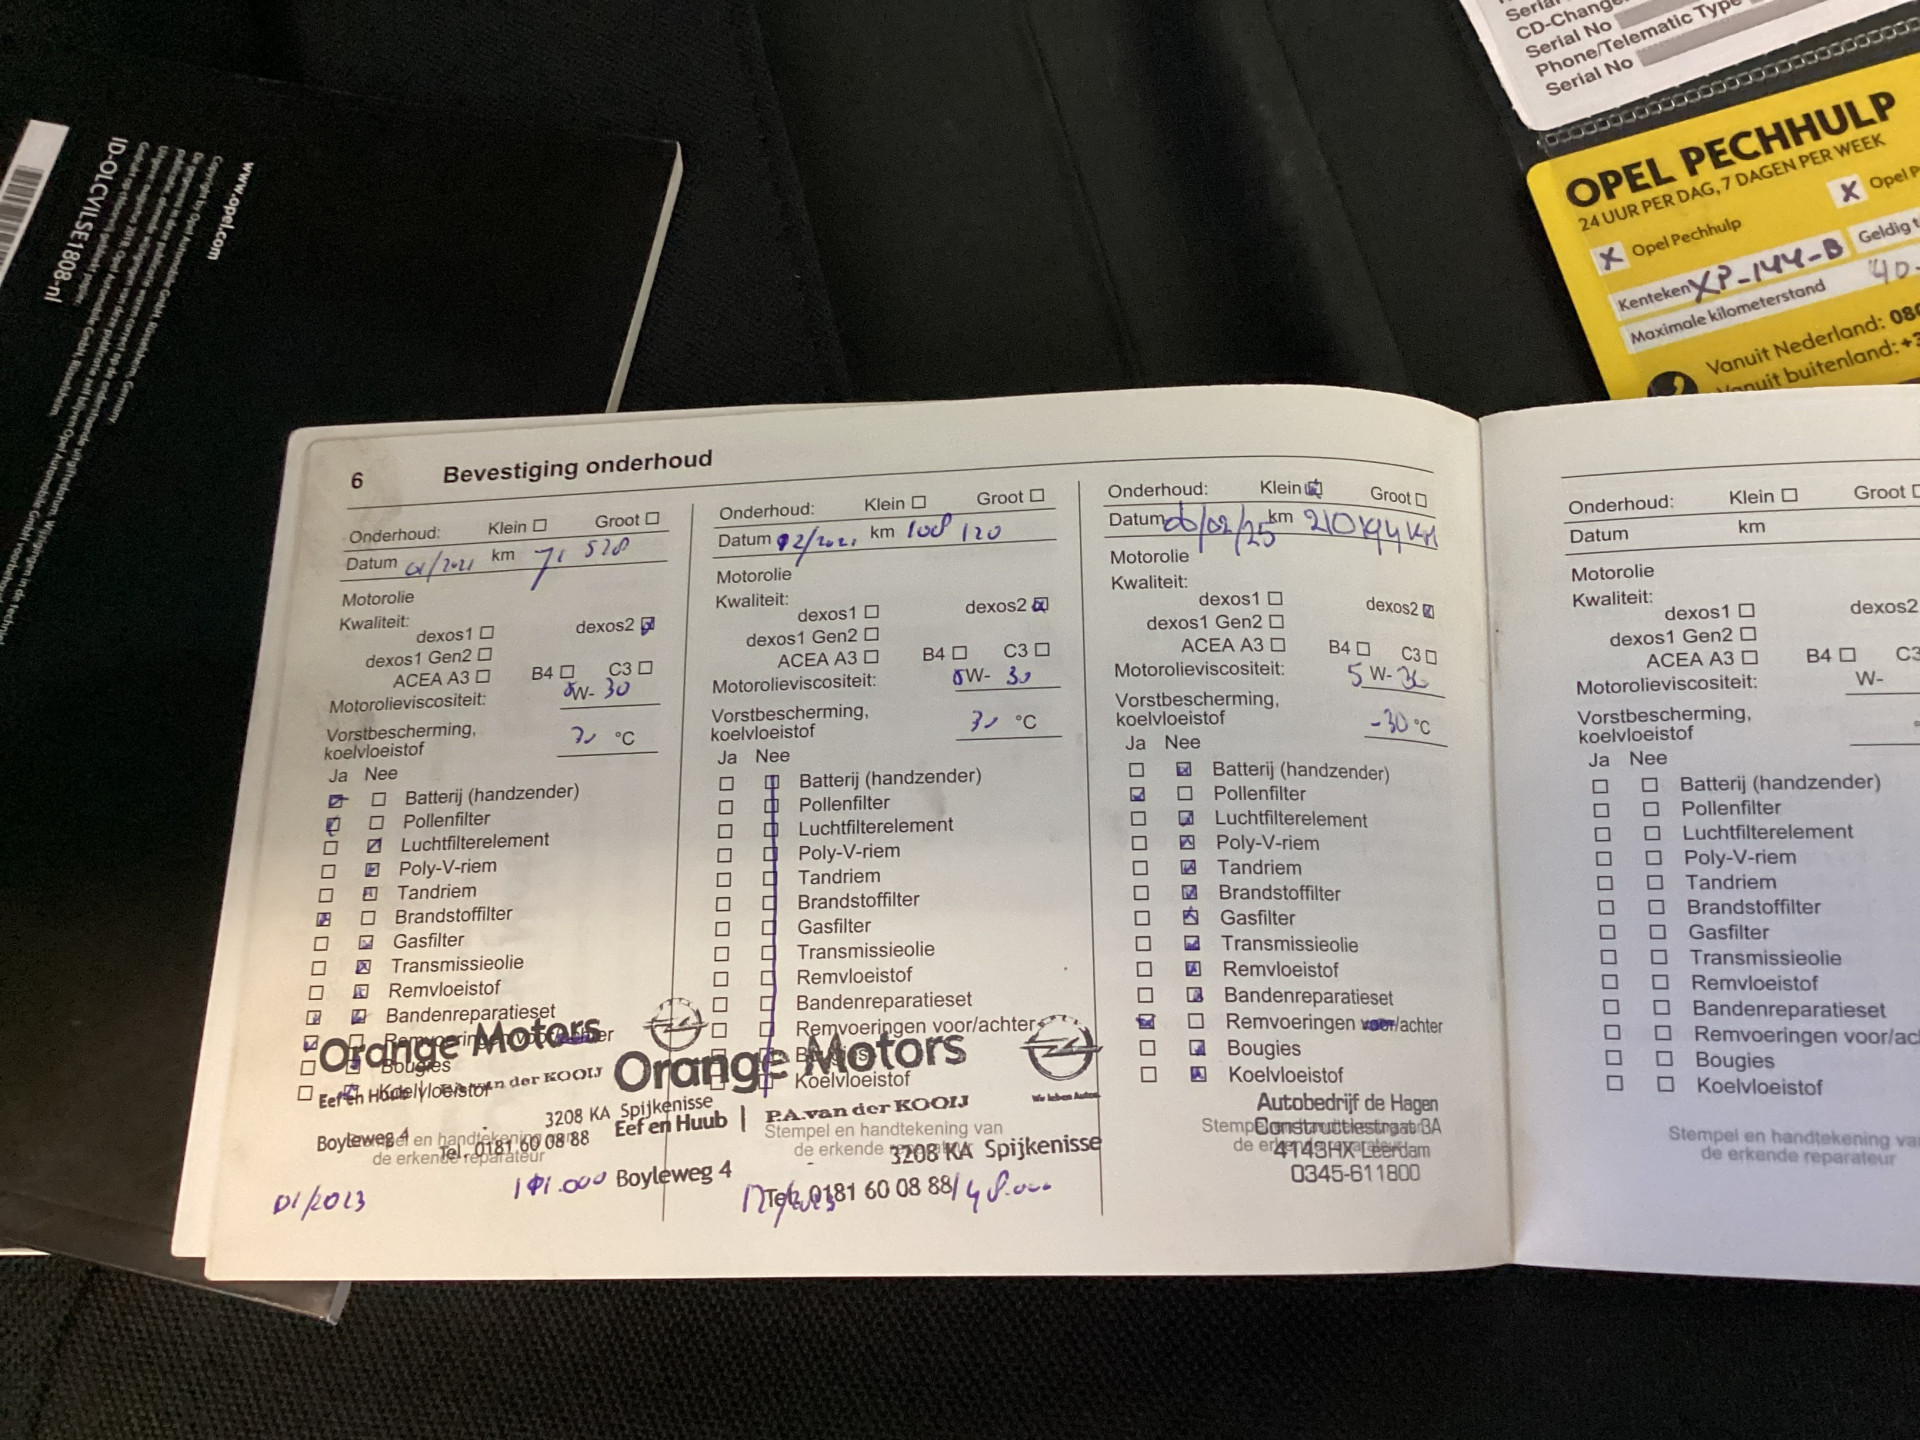 www.opel.com
Copyright by Opel Automobile GmbH, Rüsselsheim, Germany
ID-OLCVILSE1808-nl
CD-Change
Serial No
Phone/Telematic Type
Serial No
OPEL PECHHULP
24 UUR PER DAG, 7 DAGEN PER WEEK
X Opel Pechhulp
X Opel P
Kenteken XP-144-B Geldig t
Maximale kilometerstand 40-
Vanuit Nederland: 080
Vanuit buitenland: +3
6 Bevestiging onderhoud
Onderhoud: Klein Groot
Datum 01/2021 km 71 528
Motorolie
Kwaliteit:
dexos1 dexos2
dexos1 Gen2
ACEA A3 B4 C3
Motorolieviscositeit: W- 30
Vorstbescherming,
koelvloeistof °C
Ja Nee
Batterij (handzender)
Pollenfilter
Luchtfilterelement
Poly-V-riem
Tandriem
Brandstoffilter
Gasfilter
Transmissieolie
Remvloeistof
Bandenreparatieset
Bougies
Koelvloeistof
Orange Motors
Eef en Huub | P.A. van der KOOIJ
3208 KA Spijkenisse
Boyleweg 4
Tel. 0181 60 08 88
Stempel en handtekening van
de erkende reparateur
01/2023
Onderhoud: Klein Groot
Datum 12/2021 km 108 120
Motorolie
Kwaliteit:
dexos1 dexos2
dexos1 Gen2
ACEA A3 B4 C3
Motorolieviscositeit: W- 30
Vorstbescherming,
koelvloeistof °C
Ja Nee
Batterij (handzender)
Pollenfilter
Luchtfilterelement
Poly-V-riem
Tandriem
Brandstoffilter
Gasfilter
Transmissieolie
Remvloeistof
Bandenreparatieset
Remvoeringen voor/achter
Bougies
Koelvloeistof
Orange Motors
Wir leben Autos.
Eef en Huub | P.A. van der KOOIJ
Stempel en handtekening van
de erkende reparateur
3208 KA Spijkenisse
Boyleweg 4
Tel. 0181 60 08 88
Onderhoud: Klein Groot
Datum 06/02/25 km 210194 KM
Motorolie
Kwaliteit:
dexos1 dexos2
dexos1 Gen2
ACEA A3 B4 C3
Motorolieviscositeit: 5 W- 30
Vorstbescherming,
koelvloeistof -30 °C
Ja Nee
Batterij (handzender)
Pollenfilter
Luchtfilterelement
Poly-V-riem
Tandriem
Brandstoffilter
Gasfilter
Transmissieolie
Remvloeistof
Bandenreparatieset
Remvoeringen voor/achter
Bougies
Koelvloeistof
Autobedrijf de Hagen
Constructiestraat 3A
4143HX Leerdam
0345-611800
Onderhoud: Klein Groot
Datum km
Motorolie
Kwaliteit:
dexos1 dexos2
dexos1 Gen2
ACEA A3 B4 C3
Motorolieviscositeit: W-
Vorstbescherming,
koelvloeistof
Ja Nee
Batterij (handzender)
Pollenfilter
Luchtfilterelement
Poly-V-riem
Tandriem
Brandstoffilter
Gasfilter
Transmissieolie
Remvloeistof
Bandenreparatieset
Remvoeringen voor/ac
Bougies
Koelvloeistof
Stempel en handtekening va
de erkende reparateur